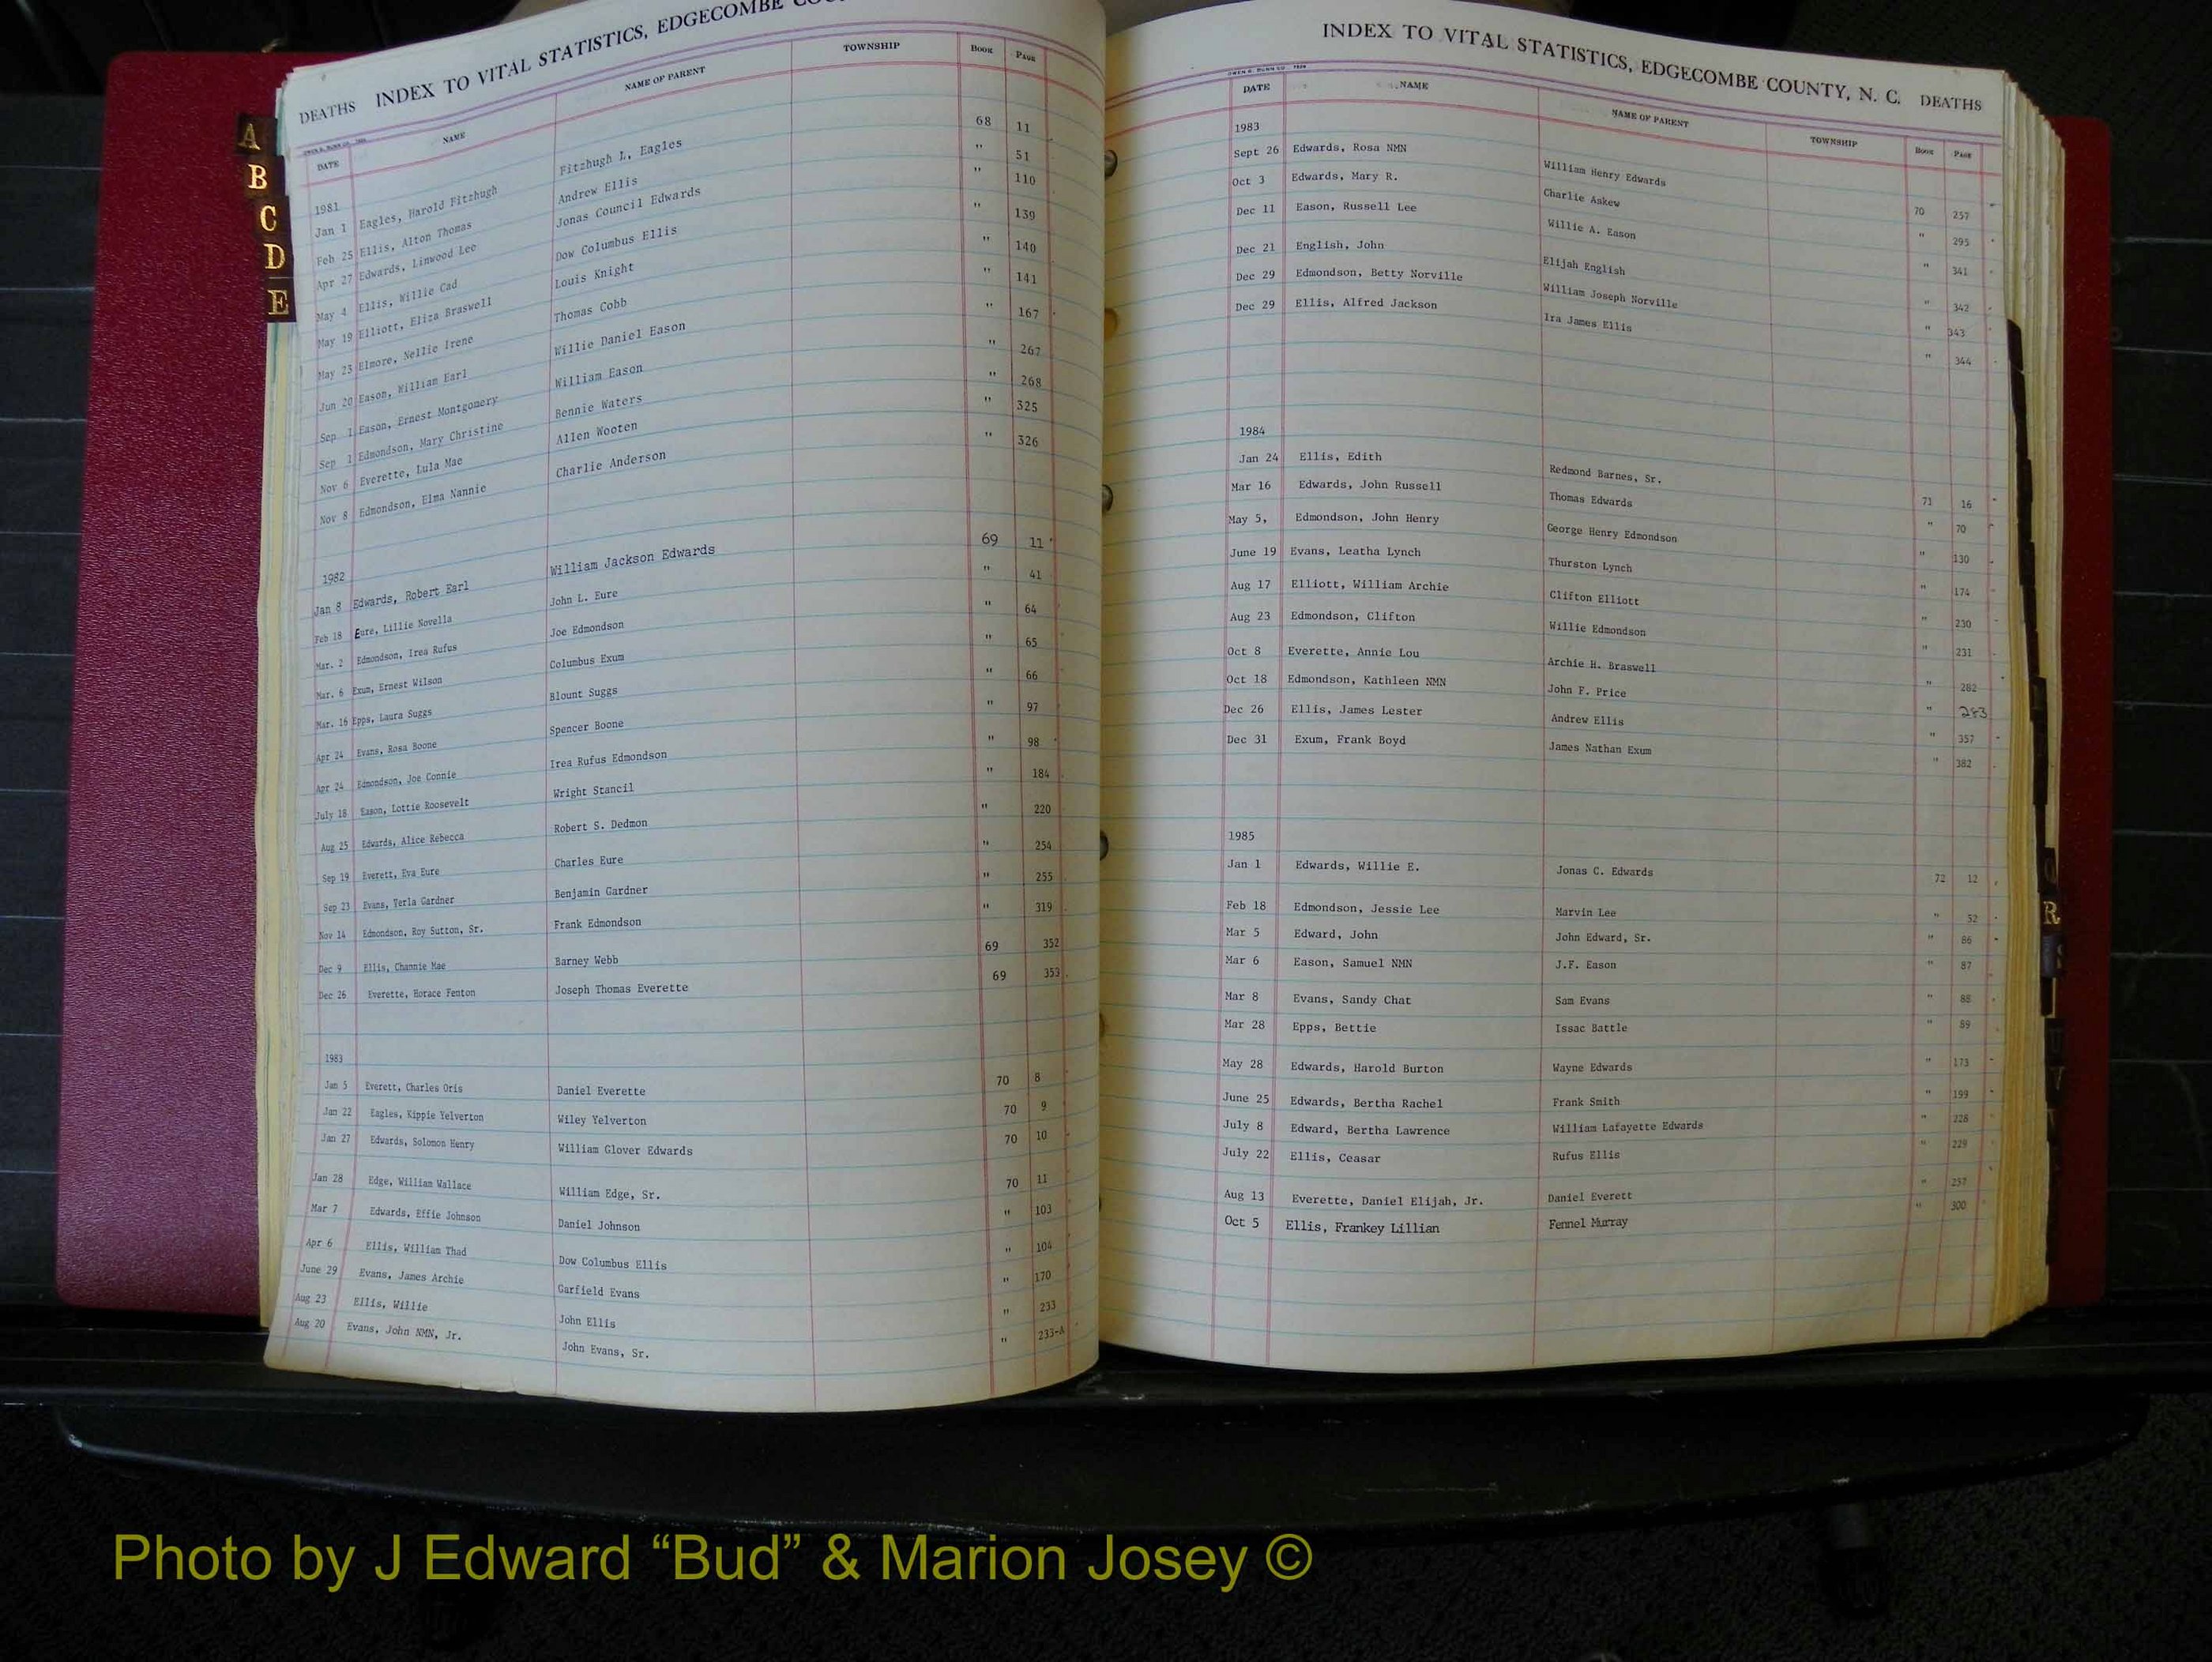 A
B
C
D
E
DEATHS INDEX TO VITAL STATISTICS, EDGECOMBE
DATE NAME NAME OF PARENT TOWNSHIP BOOK PAGE
1981
Jan 1 Eagles, Harold Fitzhugh Fitzhugh L. Eagles 68 11
Feb 25 Ellis, Alton Thomas Andrew Ellis " 51
Apr 27 Edwards, Linwood Lee Jonas Council Edwards " 110
May 4 Ellis, Willie Cad Dow Columbus Ellis " 139
May 19 Elliott, Eliza Braswell Louis Knight " 140
May 23 Elmore, Nellie Irene Thomas Cobb " 141
Jun 20 Eason, William Earl Willie Daniel Eason " 167
Sep 1 Eason, Ernest Montgomery William Eason " 267
Sep 1 Edmondson, Mary Christine Bennie Waters " 268
Nov 6 Everette, Lula Mae Allen Wooten " 325
Nov 8 Edmondson, Elma Nannie Charlie Anderson " 326
1982
Jan 8 Edwards, Robert Earl William Jackson Edwards 69 11
Feb 18 Eure, Lillie Novella John L. Eure " 41
Mar. 2 Edmondson, Irea Rufus Joe Edmondson " 64
Mar. 6 Exum, Ernest Wilson Columbus Exum " 65
Mar. 16 Epps, Laura Suggs Blount Suggs " 66
Apr 24 Evans, Rosa Boone Spencer Boone " 97
Apr 24 Edmondson, Joe Connie Irea Rufus Edmondson " 98
July 18 Eason, Lottie Roosevelt Wright Stancil " 184
Aug 25 Edwards, Alice Rebecca Robert S. Dedmon " 220
Sep 19 Everett, Eva Eure Charles Eure " 254
Sep 23 Evans, Verla Gardner Benjamin Gardner " 255
Nov 14 Edmondson, Roy Sutton, Sr. Frank Edmondson " 319
Dec 9 Ellis, Channie Mae Barney Webb 69 352
Dec 26 Everette, Horace Fenton Joseph Thomas Everette 69 353
1983
Jan 5 Everett, Charles Oris Daniel Everette 70 8
Jan 22 Eagles, Kippie Yelverton Wiley Yelverton 70 9
Jan 27 Edwards, Solomon Henry William Glover Edwards 70 10
Jan 28 Edge, William Wallace William Edge, Sr. 70 11
Mar 7 Edwards, Effie Johnson Daniel Johnson " 103
Apr 6 Ellis, William Thad Dow Columbus Ellis " 104
June 29 Evans, James Archie Garfield Evans " 170
Aug 23 Ellis, Willie John Ellis " 233
Aug 20 Evans, John NMN, Jr. John Evans, Sr. " 233-A
INDEX TO VITAL STATISTICS, EDGECOMBE COUNTY, N. C. DEATHS
DATE NAME NAME OF PARENT TOWNSHIP BOOK PAGE
1983
Sept 26 Edwards, Rosa NMN William Henry Edwards 70 257
Oct 3 Edwards, Mary R. Charlie Askew " 295
Dec 11 Eason, Russell Lee Willie A. Eason " 341
Dec 21 English, John Elijah English " 342
Dec 29 Edmondson, Betty Norville William Joseph Norville " 343
Dec 29 Ellis, Alfred Jackson Ira James Ellis " 344
1984
Jan 24 Ellis, Edith Redmond Barnes, Sr. 71 16
Mar 16 Edwards, John Russell Thomas Edwards " 70
May 5, Edmondson, John Henry George Henry Edmondson " 130
June 19 Evans, Leatha Lynch Thurston Lynch " 174
Aug 17 Elliott, William Archie Clifton Elliott " 230
Aug 23 Edmondson, Clifton Willie Edmondson " 231
Oct 8 Everette, Annie Lou Archie H. Braswell " 282
Oct 18 Edmondson, Kathleen NMN John F. Price " 283
Dec 26 Ellis, James Lester Andrew Ellis " 357
Dec 31 Exum, Frank Boyd James Nathan Exum " 382
1985
Jan 1 Edwards, Willie E. Jonas C. Edwards 72 12
Feb 18 Edmondson, Jessie Lee Marvin Lee " 52
Mar 5 Edward, John John Edward, Sr. " 86
Mar 6 Eason, Samuel NMN J.F. Eason " 87
Mar 8 Evans, Sandy Chat Sam Evans " 88
Mar 28 Epps, Bettie Issac Battle " 89
May 28 Edwards, Harold Burton Wayne Edwards " 173
June 25 Edwards, Bertha Rachel Frank Smith " 199
July 8 Edward, Bertha Lawrence William Lafayette Edwards " 228
July 22 Ellis, Ceasar Rufus Ellis " 229
Aug 13 Everette, Daniel Elijah, Jr. Daniel Everett " 257
Oct 5 Ellis, Frankey Lillian Fennel Murray " 300
R
Photo by J Edward “Bud” & Marion Josey ©